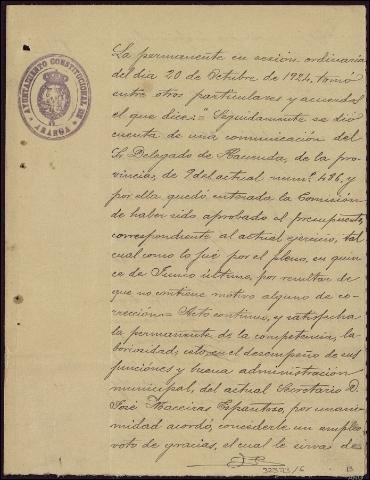 AYUNTAMIENTO CONSTITUCIONAL DE
La permanente en sesión ordinaria
del dia 20 de Octubre de 1924, tomó
entre otros particulares y acuerdos
el que dice:= "Seguidamente se dió
cuenta de una comunicación del
Sr. Delegado de Hacienda, de la pro-
vincia, de 9 del actual num.º 486, y
por ella quedó enterada la Comisión
de haber sido aprobado el presupuesto,
correspondiente al actual ejercicio, tal
cual como lo fué por el pleno, en quin-
ce de Junio último, por resultar de
que no contiene motivo alguno de co-
rrección= Acto continuo, y satisfecha
la permanente de la competencia, la-
boriosidad, celo, en el desempeño de sus
funciónes y buena administración
municipal, del actual Secretario D.
José Maceiras Espantoso, por unani-
midad acordó, concederle un amplio
voto de gracias, el cual le sirva de
32373/6
13